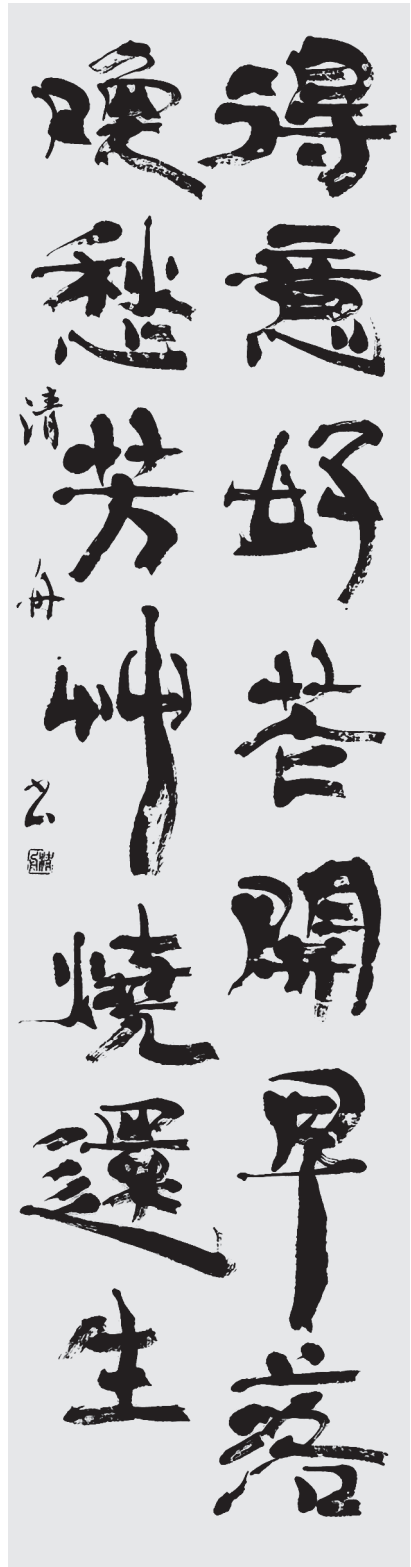 得意好花開早落
喚愁芳艸燒還生
清舟书